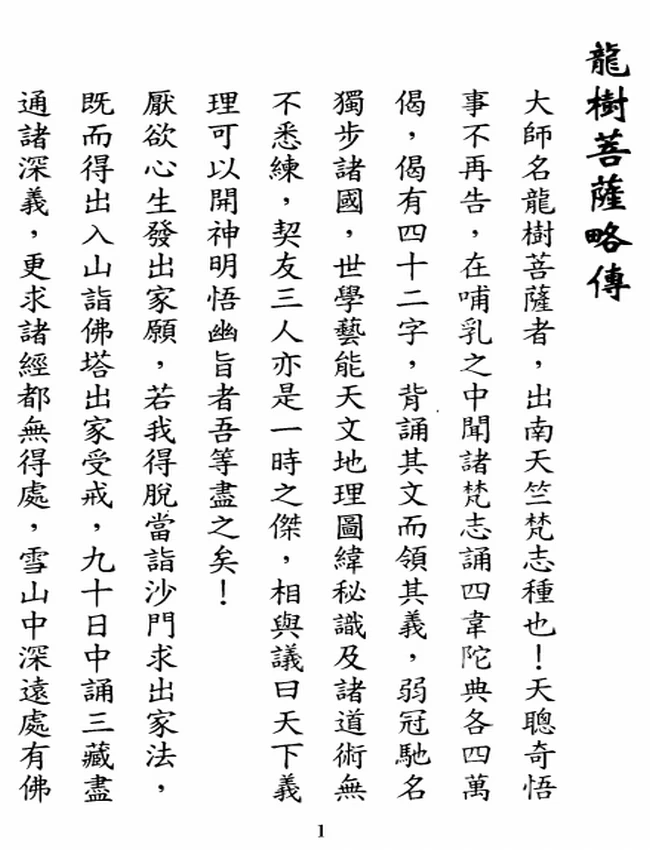 龍樹菩薩略傳
大師名龍樹菩薩者，出南天竺梵志種也！天聰奇悟
事不再告，在哺乳之中聞諸梵志誦四韋陀典各四萬
偈，偈有四十二字，背誦其文而領其義，弱冠馳名
獨步諸國，世學藝能天文地理圖緯秘識及諸道術無
不悉練，契友三人亦是一時之傑，相與議曰天下義
理可以開神明悟幽旨者吾等盡之矣！
厭欲心生發出家願，若我得脫當詣沙門求出家法，
既而得出入山詣佛塔出家受戒，九十日中誦三藏盡
通諸深義，更求諸經都無得處，雪山中深遠處有佛
1